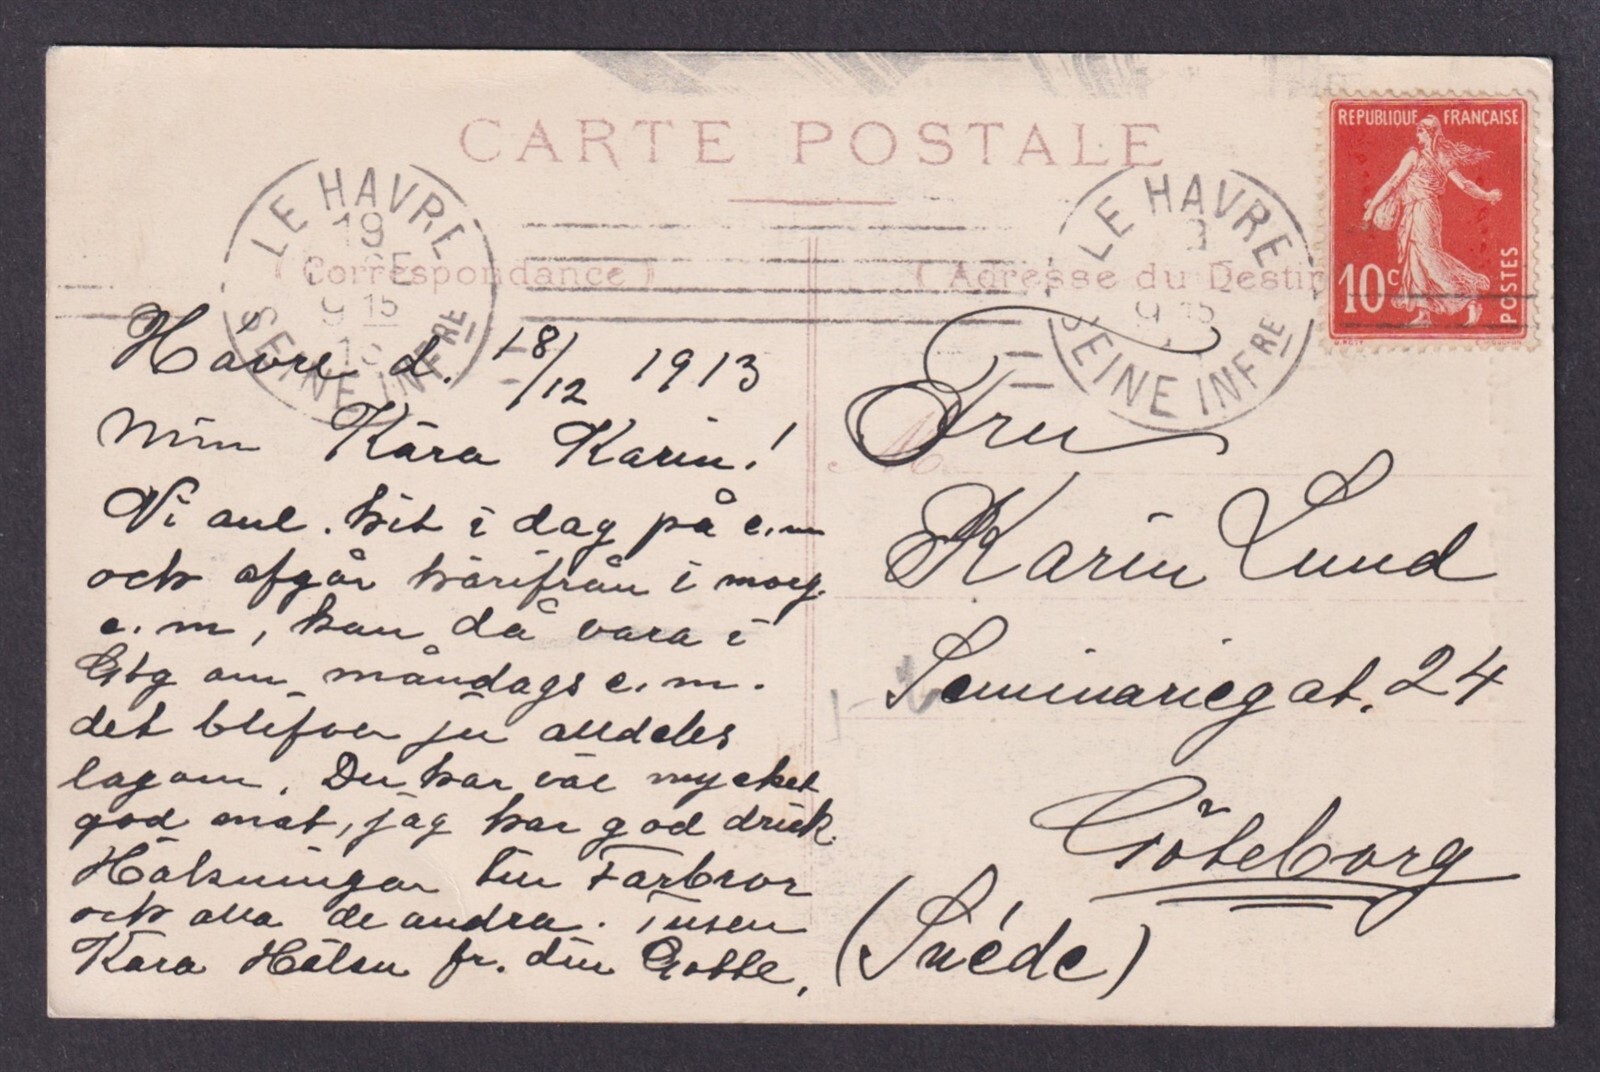 CARTE POSTALE
REPUBLIQUE FRANÇAISE
10c
POSTES
LE HAVRE
19
9 15
SEINE INFRE
LE HAVRE
9 15
SEINE INFRE
(Correspondance)
(Adresse du Destin
Hâvre d. 18/12 1913
Min Kära Karin!
Vi anl. hit i dag på e.m
och afgår härifrån i morg.
e.m, kan då vara i
Gbg om måndags e.m.
det blifver ju alldeles
lagom. Du har väl mycket
god mat, jag har god drick.
Hälsningar till Farbror
och alla de andra. Tusen
Kära Hälsn fr. din Gotte,
Fru
Karin Lund
Seminariegat. 24
Göteborg
(Suéde)